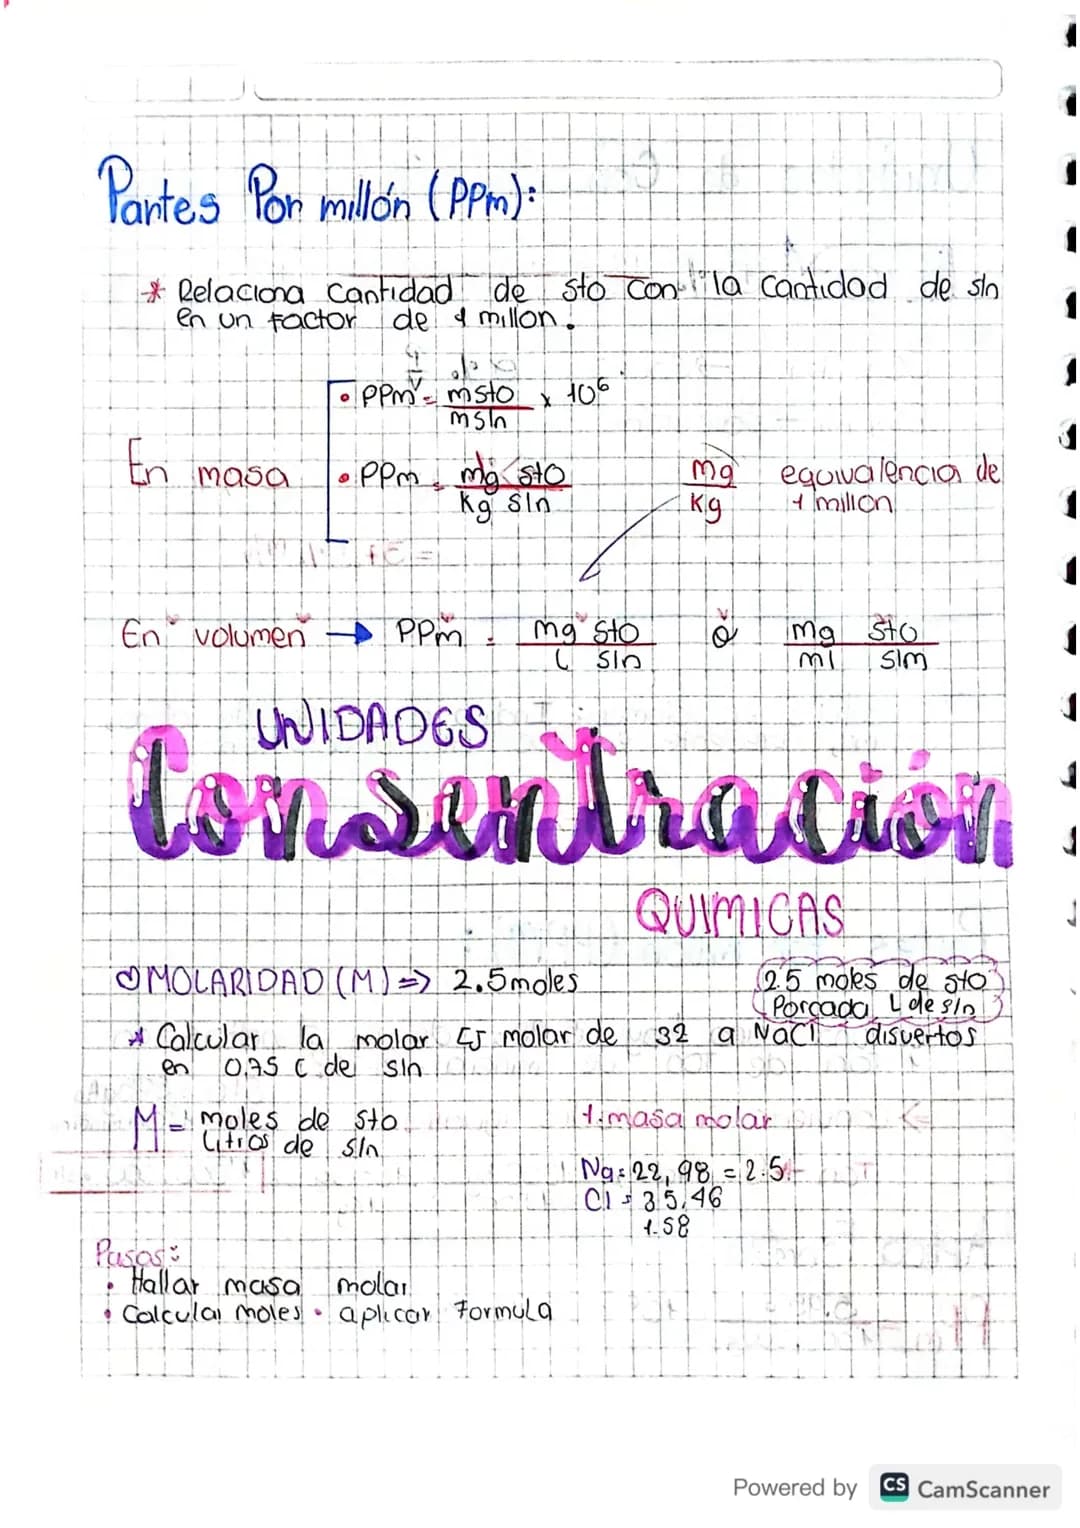 Partes Por millón (PPm):
* Relaciona cantidad de sto con la cantidad de sln
en un factor de 1 millon.
• PPm = msto / msln x 10⁶
En masa
• PPm = mg sto / Kg sln
mg / Kg equivalencia de
1 millon
En volumen → PPm = mg sto / L sln ò mg sto / ml slm
UNIDADES
Consentración
QUIMICAS
MOLARIDAD (M) => 2.5 moles
2.5 moles de sto
Porcada L de sln
* Calcular la molar molar de 32 g NaCl disuertos
en 0,75 L de sln
M = moles de sto
Litros de sln
1. masa molar
Na = 22,98 = 2.5
Cl = 35,46
1.58
Pasos:
• Hallar masa molar
• Calcular moles • aplicar Formula
Powered by CS CamScanner